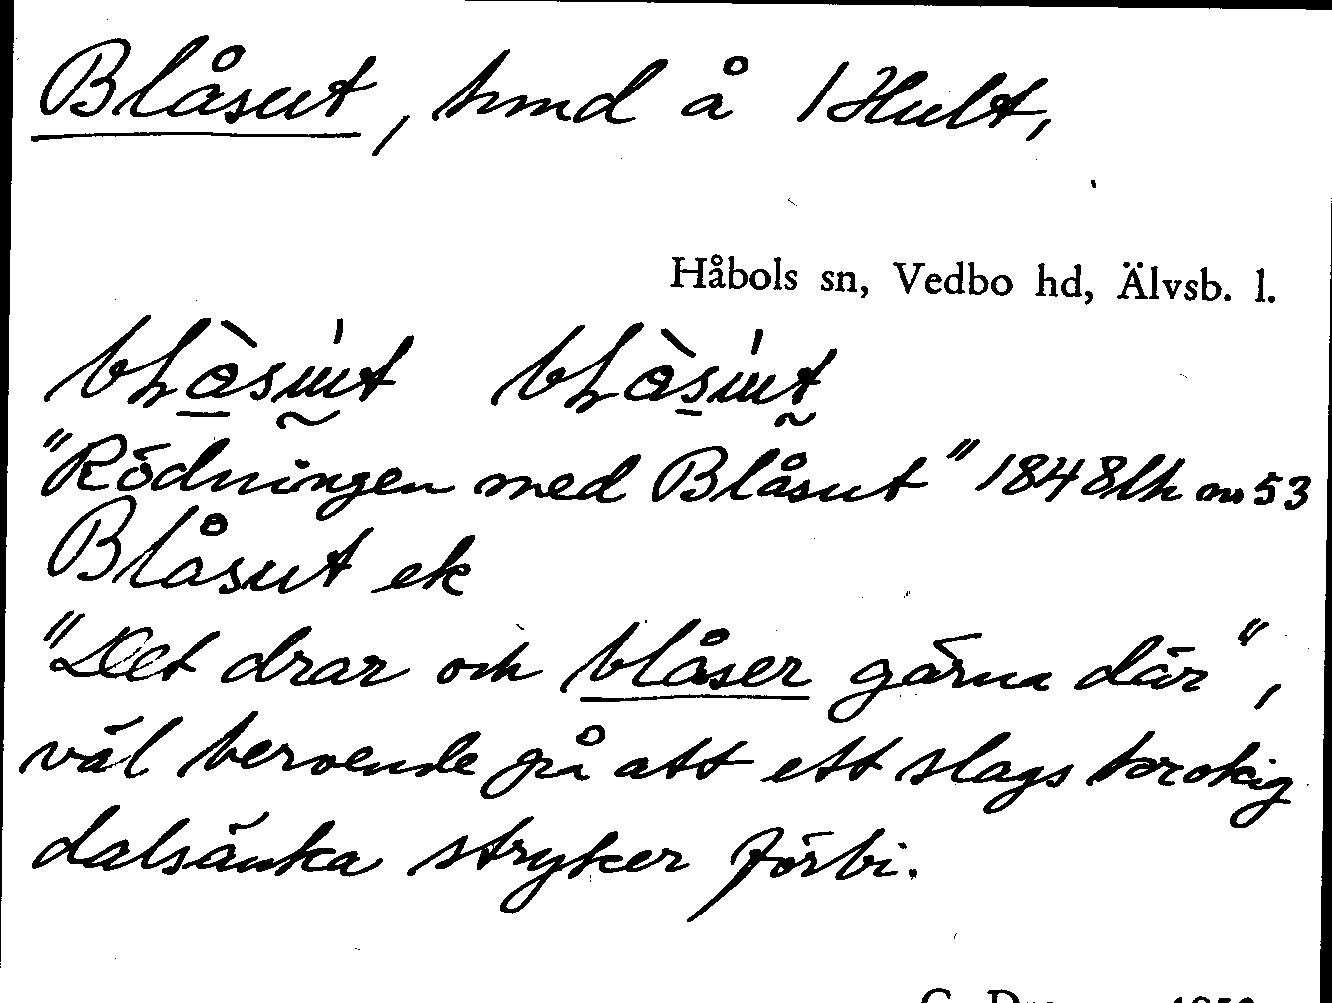 Blåsut, hmd å 1 Hult,
Håbols sn, Vedbo hd, Älvsb. l.
"Rödningen med Blåsut" 1848 lh nr 53
Blåsut ek
"Det drar och blåser gärna där",
väl beroende på att ett slags krokig
dalsänka stryker förbi.